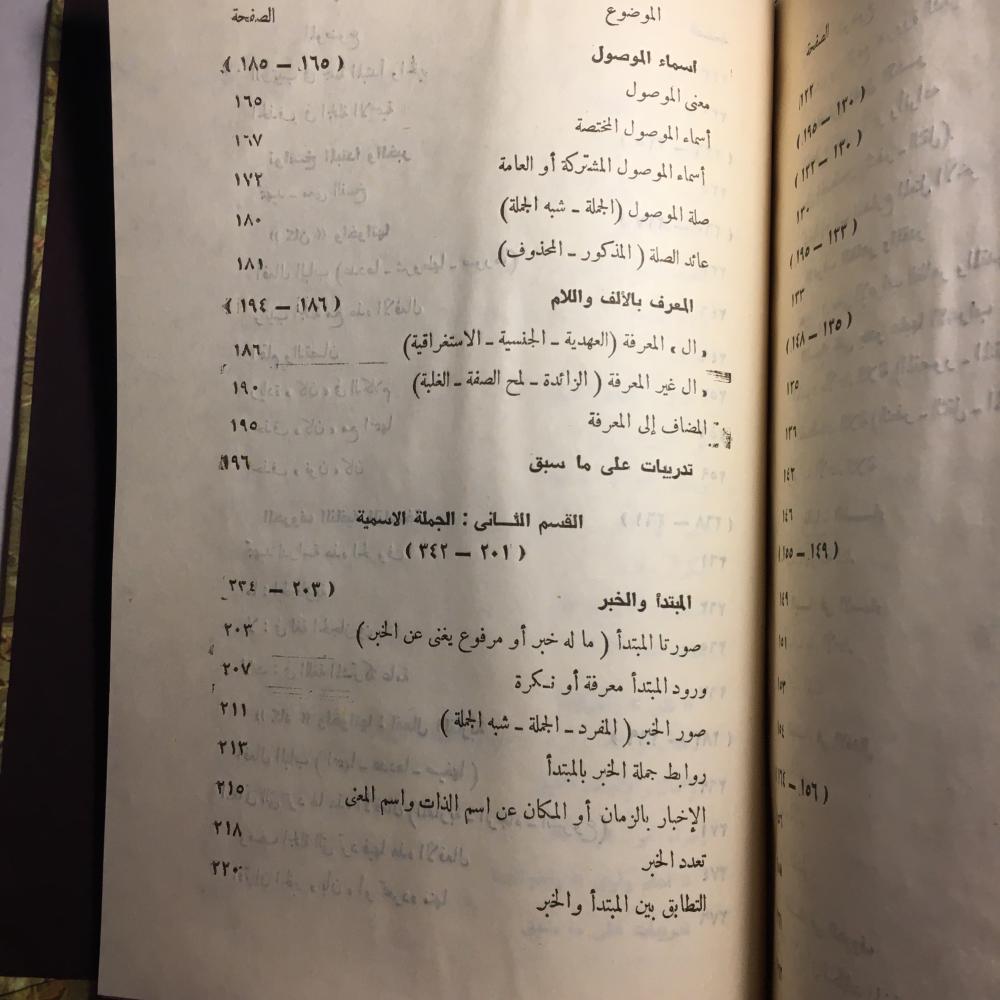 الموضوع الصفحة
اسماء الموصول (١٦٥ — ١٨٥)
معنى الموصول ١٦٥
أسماء الموصول المختصة ١٦٧
أسماء الموصول المشتركة أو العامة ١٧٢
صلة الموصول (الجملة - شبه الجملة) ١٨٠
عائد الصلة (المذكور - المحذوف) ١٨١
المعرف بالألف واللام (١٨٦ — ١٩٤)
« ال » المعرفة (العهدية - الجنسية - الاستغراقية) ١٨٦
« ال غير المعرفة (الزائدة - لمح الصفة - الغلبة) ١٩٠
المضاف إلى المعرفة ١٩٥
تدريبات على ما سبق ١٩٦
القسم الثانى : الجملة الاسمية
(٢٠١ — ٣٤٢)
المبتدأ والخبر (٢٠٣ — ٢٣٤
صورتا المبتدأ (ما له خبر أو مرفوع يغنى عن الخبر) ٢٠٣
ورود المبتدأ معرفة أو نكرة ٢٠٧
صور الخبر (المفرد - الجملة - شبه الجملة) ٢١١
روابط جملة الخبر بالمبتدأ ٢١٣
الإخبار بالزمان أو المكان عن اسم الذات واسم المعنى ٢١٥
تعدد الخبر ٢١٨
التطابق بين المبتدأ والخبر ٢٢٠
الصفحة
١٢٢
(١٣٠ — ١٩٥)
(١٣٠ — ١٣٢)
١٣٠
(١٣٣ — ١٩٥)
١٣٣
(١٣٥ — ١٤٨)
١٣٥
١٣٦
١٤٢
١٤٦
(١٤٩ — ١٥٥)
١٤٩
١٥١
١٥٣
١٥٤